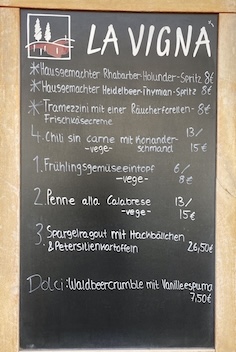 LA VIGNA
* Hausgemachter Rhabarber-Holunder-Spritz 8€
* Hausgemachter Heidelbeer-Thymian-Spritz 8€
* Tramezzini mit einer Räucherforellen- 8€
Frischkäsecreme
4. Chili sin carne mit Koriander- 13/
-vege- schmand 15€
1. Frühlingsgemüseeintopf 6/
-vege- 8€
2. Penne alla Calabrese 13/
-vege- 15€
3. Spargelragout mit Hackbällchen
& Petersilienkartoffeln 26,50€
Dolci: Waldbeercrumble mit Vanilleespuma
7,50€